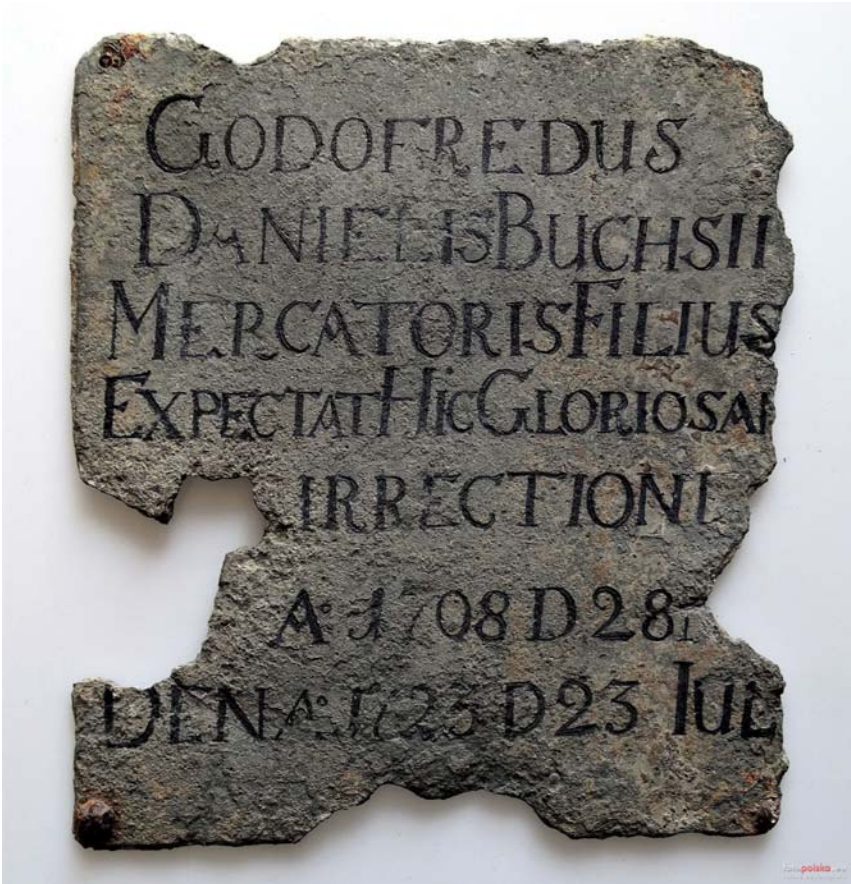 GODOFREDUS
DANIELIS BUCHSII
MERCATORIS FILIUS
EXPECTAT HIC GLORIOSAM
IRRECTIONE
A: 1708 D 28
DEN A: 1723 D 23 IUL
fotopolska.eu